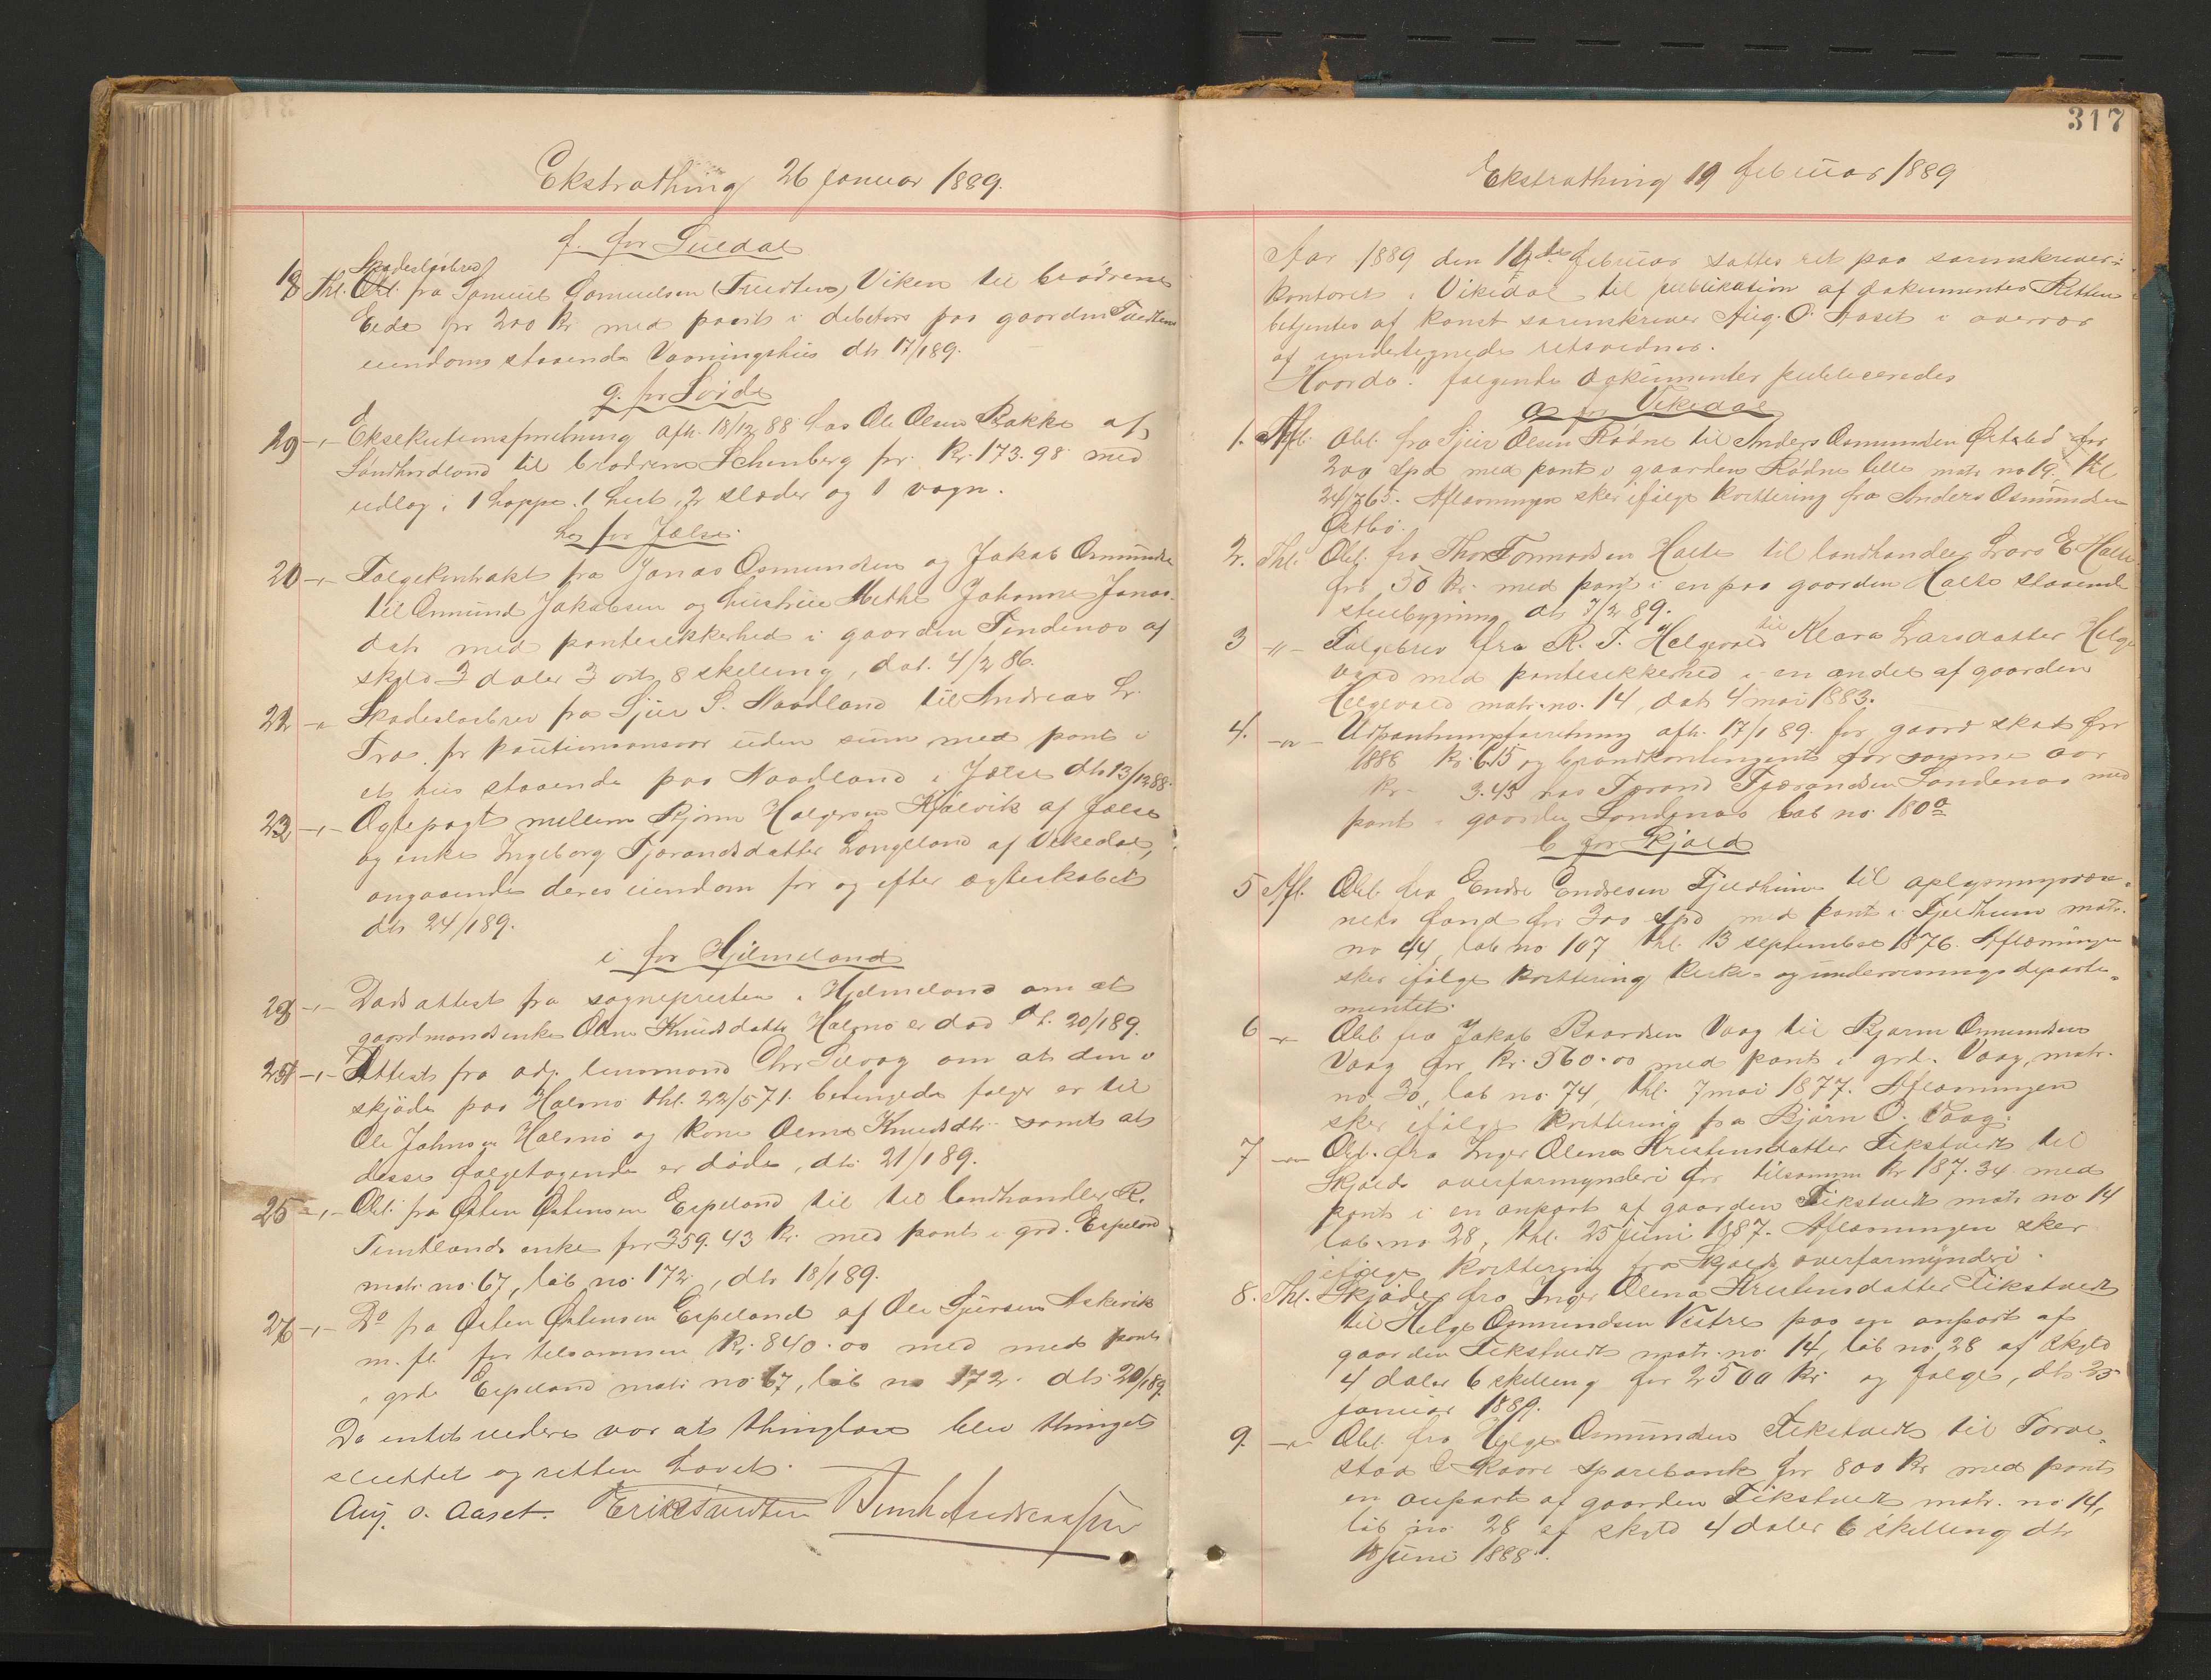 Ekstrathing 26 januar 1889.
f. for Suledal
Skadesløsbrev
18 Thl. Obl. fra Samuel Samuelsen (Tvedten) Viken til brødrene
Eede for 200 Kr. med pant i debitors paa gaarden Tvedten
eiendoms staaende Vaaningshus dt. 17/1 89.
g. for Søvde
19 -"- Eksekutionsforretning afh. 18/12 88 hos Ole Olsen Bakke af
Søndhordland til brødrene Schenberg for Kr. 173.98 med
udlæg i 1 hoppe, 1 hest, 2 slæder og 1 vogn.
h. for Jelse
20 -"- Følgekontrakt fra Jonas Osmundsen og Jakob Osmundsen
til Osmund Jakobsen og hustru Methe Johanne Jonas-
datr. med pantesikkerhed i gaarden Tendenæs af
skyld 3 daler 3 ort 8 skilling, dat. 4/2 86.
21 -"- Skadesløsbrev fra Sjur S. Naadland til Andreas Lr.
Træ for kautionsansvar uden sum med pant i
et hus staaende paa Naadland i Jelse dt. 13/12 88.
22 -"- Ægtepagt mellem Bjørn Halgersen Hjølvik af Jelse
og enke Ingeborg Tjerandsdatter Langeland af Vikedal,
angaaende deres eiendom før og efter ægteskabet
dt. 24/1 89.
i for Hjelmeland
23 -"- Dødsattest fra sognepresten i Hjelmeland om at
gaardmandsenke Olene Knudsdatter Halsnø er død dt. 20/1 89.
24 -"- Attest fra adj. lensmand Chr. Selvaag om at den i
skjøde paa Halsnø thl. 22/5 71 betingede følge er til
Ole Johnsen Halsnø og kone Olene Knudsdtr. samt at
disse følgetagende er døde, dt. 21/1 89.
25 -"- Obl. fra Østen Østensen Espeland til til landhandler R.
Timtlands enke for 359.43 Kr. med pant i grd. Espeland
matr. no. 67, løb no. 172, dt. 18/1 89.
26 -"- Do fra Østen Østensen Espeland af Ole Sjursen Askvik
m. fl. for tilsammen Kr. 840.00 med med pant
i grd. Espeland matr. no. 67, løb no 172. dt. 20/1 89
Da intet videre var at thinglæse blev thinget
sluttet og retten hævet.
Aug. O. Aaset. Erik Tvedten
317
Ekstrathing 19 februar 1889
Aar 1889 den 19de februar sattes ret paa sorenskriver-
kontoret i Vikedal til publikation af dokumenter Retten
betjentes af konst. sorenskriver Aug. O. Aaset i overvær
af undertegnede retsvidner.
Hvorda: følgende dokumenter publiceredes
a. for Vikedal
1. Afl. Obl. fra Sjur Olsen Rødne til Anders Osmundsen Ørtsbø for
200 Spd. med pant i gaarden Rødne lille matr. no 19, thl.
24/7 65. Aflæsningen sker ifølge kvittering fra Anders Osmundsen
Ørtbø.
2. Thl. Obl. fra Thor Tormodsen Halle til landhandler Lars E. Halle
for 50 Kr. med pant i en paa gaarden Halle staaende
stuebygning dt. 7/2 89.
3 -"- Følgebrev fra R. T. Helgevold til Klara Larsdatter Helge
vold med pantesikkerhed i en andel af gaarden
Helgevold matr. no. 14, dat. 4 mai 1883.
4. -"- Udpantningsforretning afh. 17/1 89. for gaard skat for
1888 Kr. 6.15 og brandkontingent for samme aar
Kr. 3.43 hos Tjerand Tjerandsen Sandenæs med
pant i gaarden Sandenæs løb no. 180 a
b for Skjold
5 Afl. Obl. fra Endre Endresen Fjeldheim til oplysningsvæs-
nets fond for 300 Spd med pant i Fjeldheim matr.
no 44, løb no 107 thl. 13 september 1876. Aflæsningen
sker ifølge kvittering kirke- og undervisningsdeparte-
mentet.
6 -"- Obl. fra Jakob Baardsen Vaag til Bjørn Osmundsen
Vaag for Kr. 560.00 med pant i grd. Vaag, matr.
no 30, løb no. 74, thl. 7 mai 1877. Aflæsningen
sker ifølge kvittering fra Bjørn O. Vaag.
7 -"- Obl. fra Inger Olena Kristensdatter Tikstvedt til
Skjolds overformynderi for tilsammen Kr. 187.34 med
pant i en anpart af gaarden Tikstvedt matr. no 14
løb no 28, thl. 25 juni 1887. Aflæsningen sker
ifølge kvittering fra Skjolds overformynderi.
8. Thl. Skjøde fra Inger Olena Kristensdatter Tikstvedt
til Helge Osmundsen Vestre paa en anpart af
gaarden Tikstvedt matr. no. 14, løb no. 28 af skyld
4 daler 6 skilling for 2500 Kr. og følge, dt. 25
januar 1889.
9. -"- Obl. fra Helge Osmundsen Tikstvedt til Torve-
stad & Skaare Sparebank for 800 Kr. med pant
en anpart af gaarden Tikstvedt matr. no 14,
løb no. 28 af skyld 4 daler 6 skilling dt.
18 juni 1888.